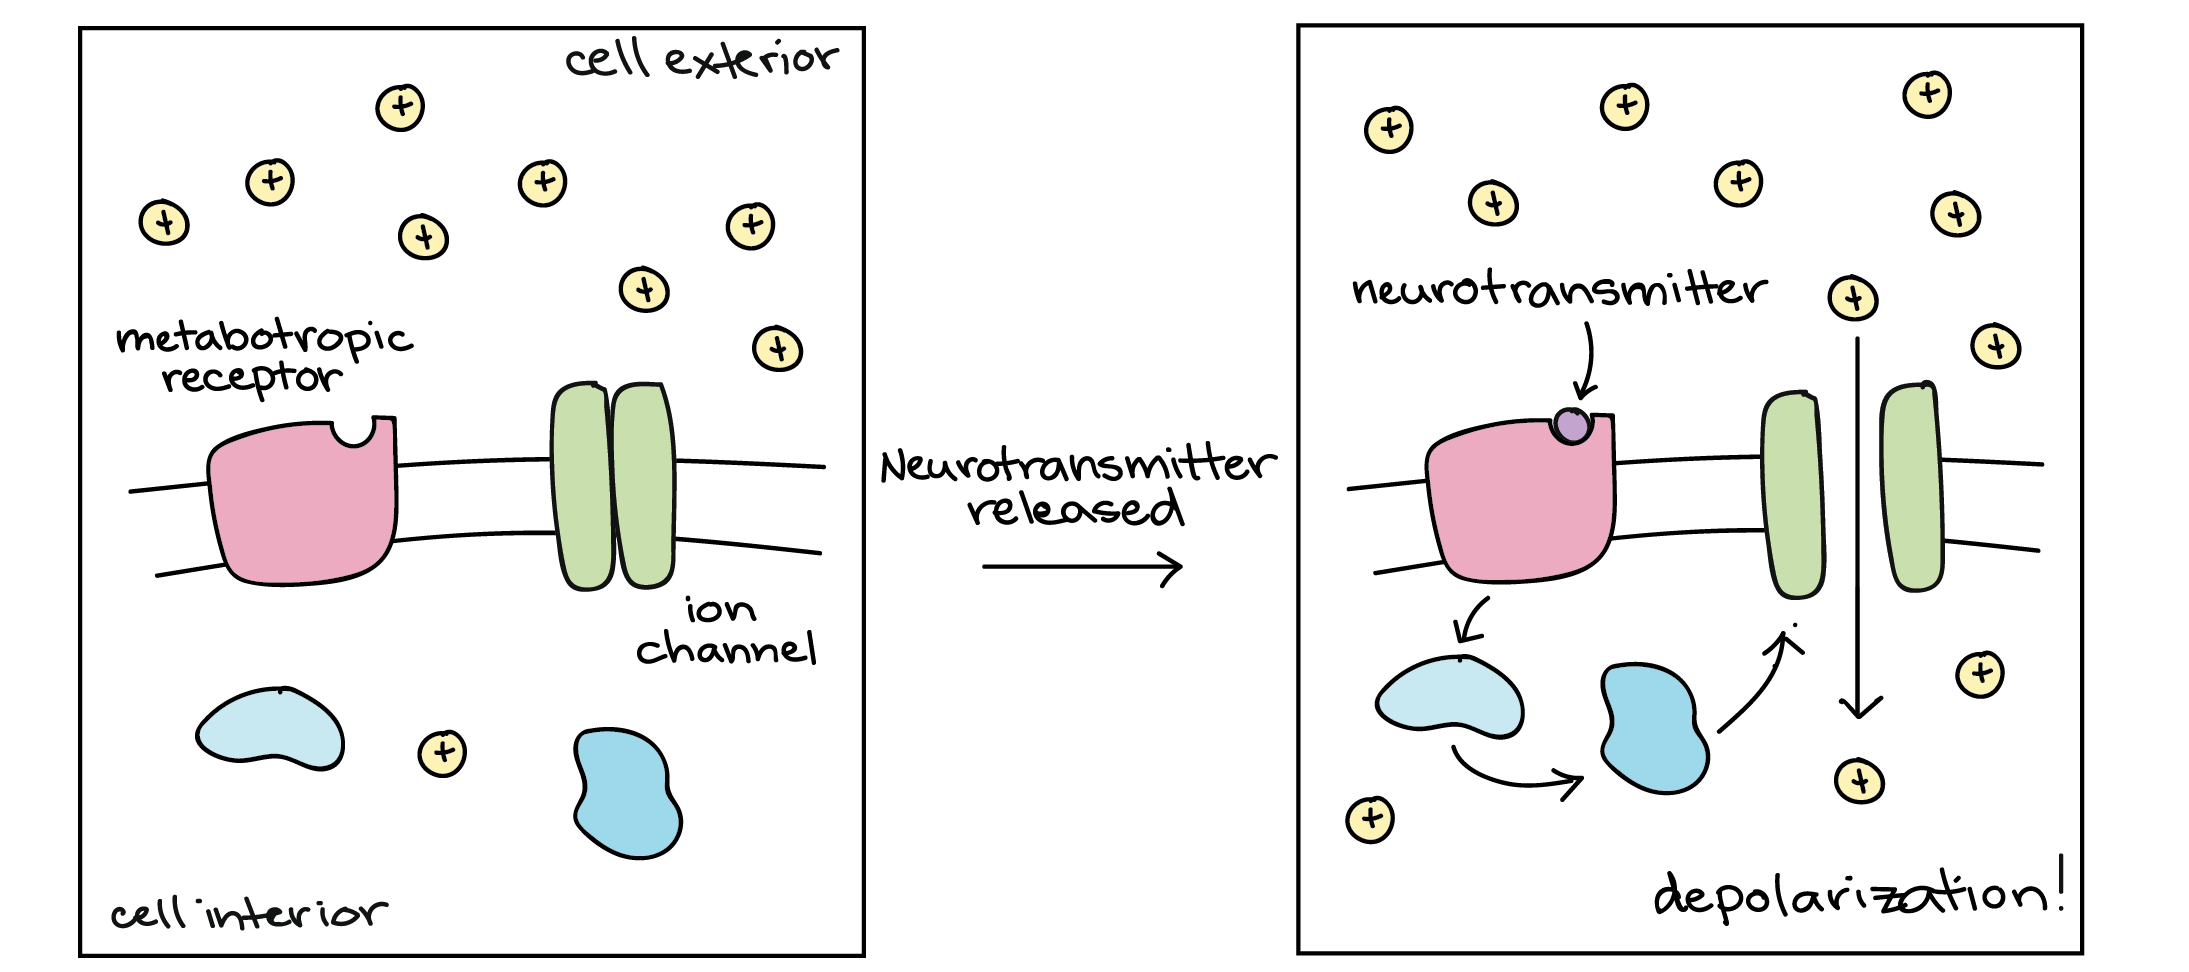 cell exterior
metabotropic
receptor
ion
channel
cell interior
Neurotransmitter
released
neurotransmitter
depolarization!